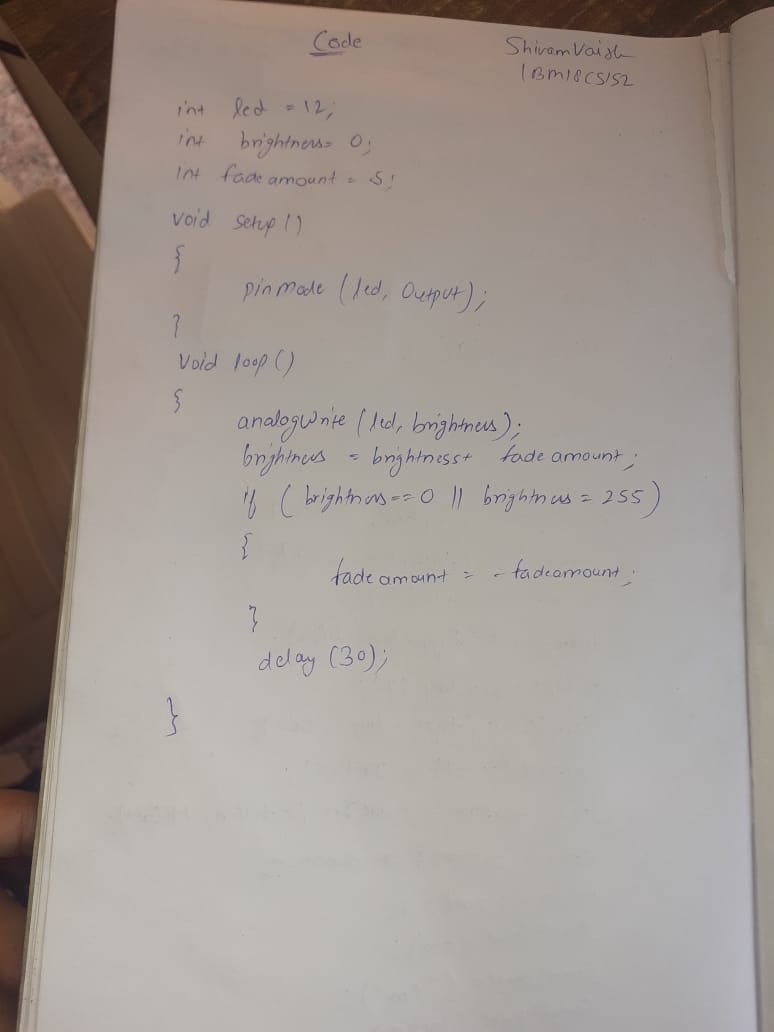 Code
Shivam Vaish
1BM18CS152
int led = 12;
int brightness= 0;
int fadeamount = 5;
void setup()
{
pinmode (led, Output);
}
void loop()
{
analogWrite (led, brightness);
brightness = brightness+ fadeamount;
if ( brightness==0 || brightness = 255)
{
fadeamount = -fadeamount;
}
delay (30);
}